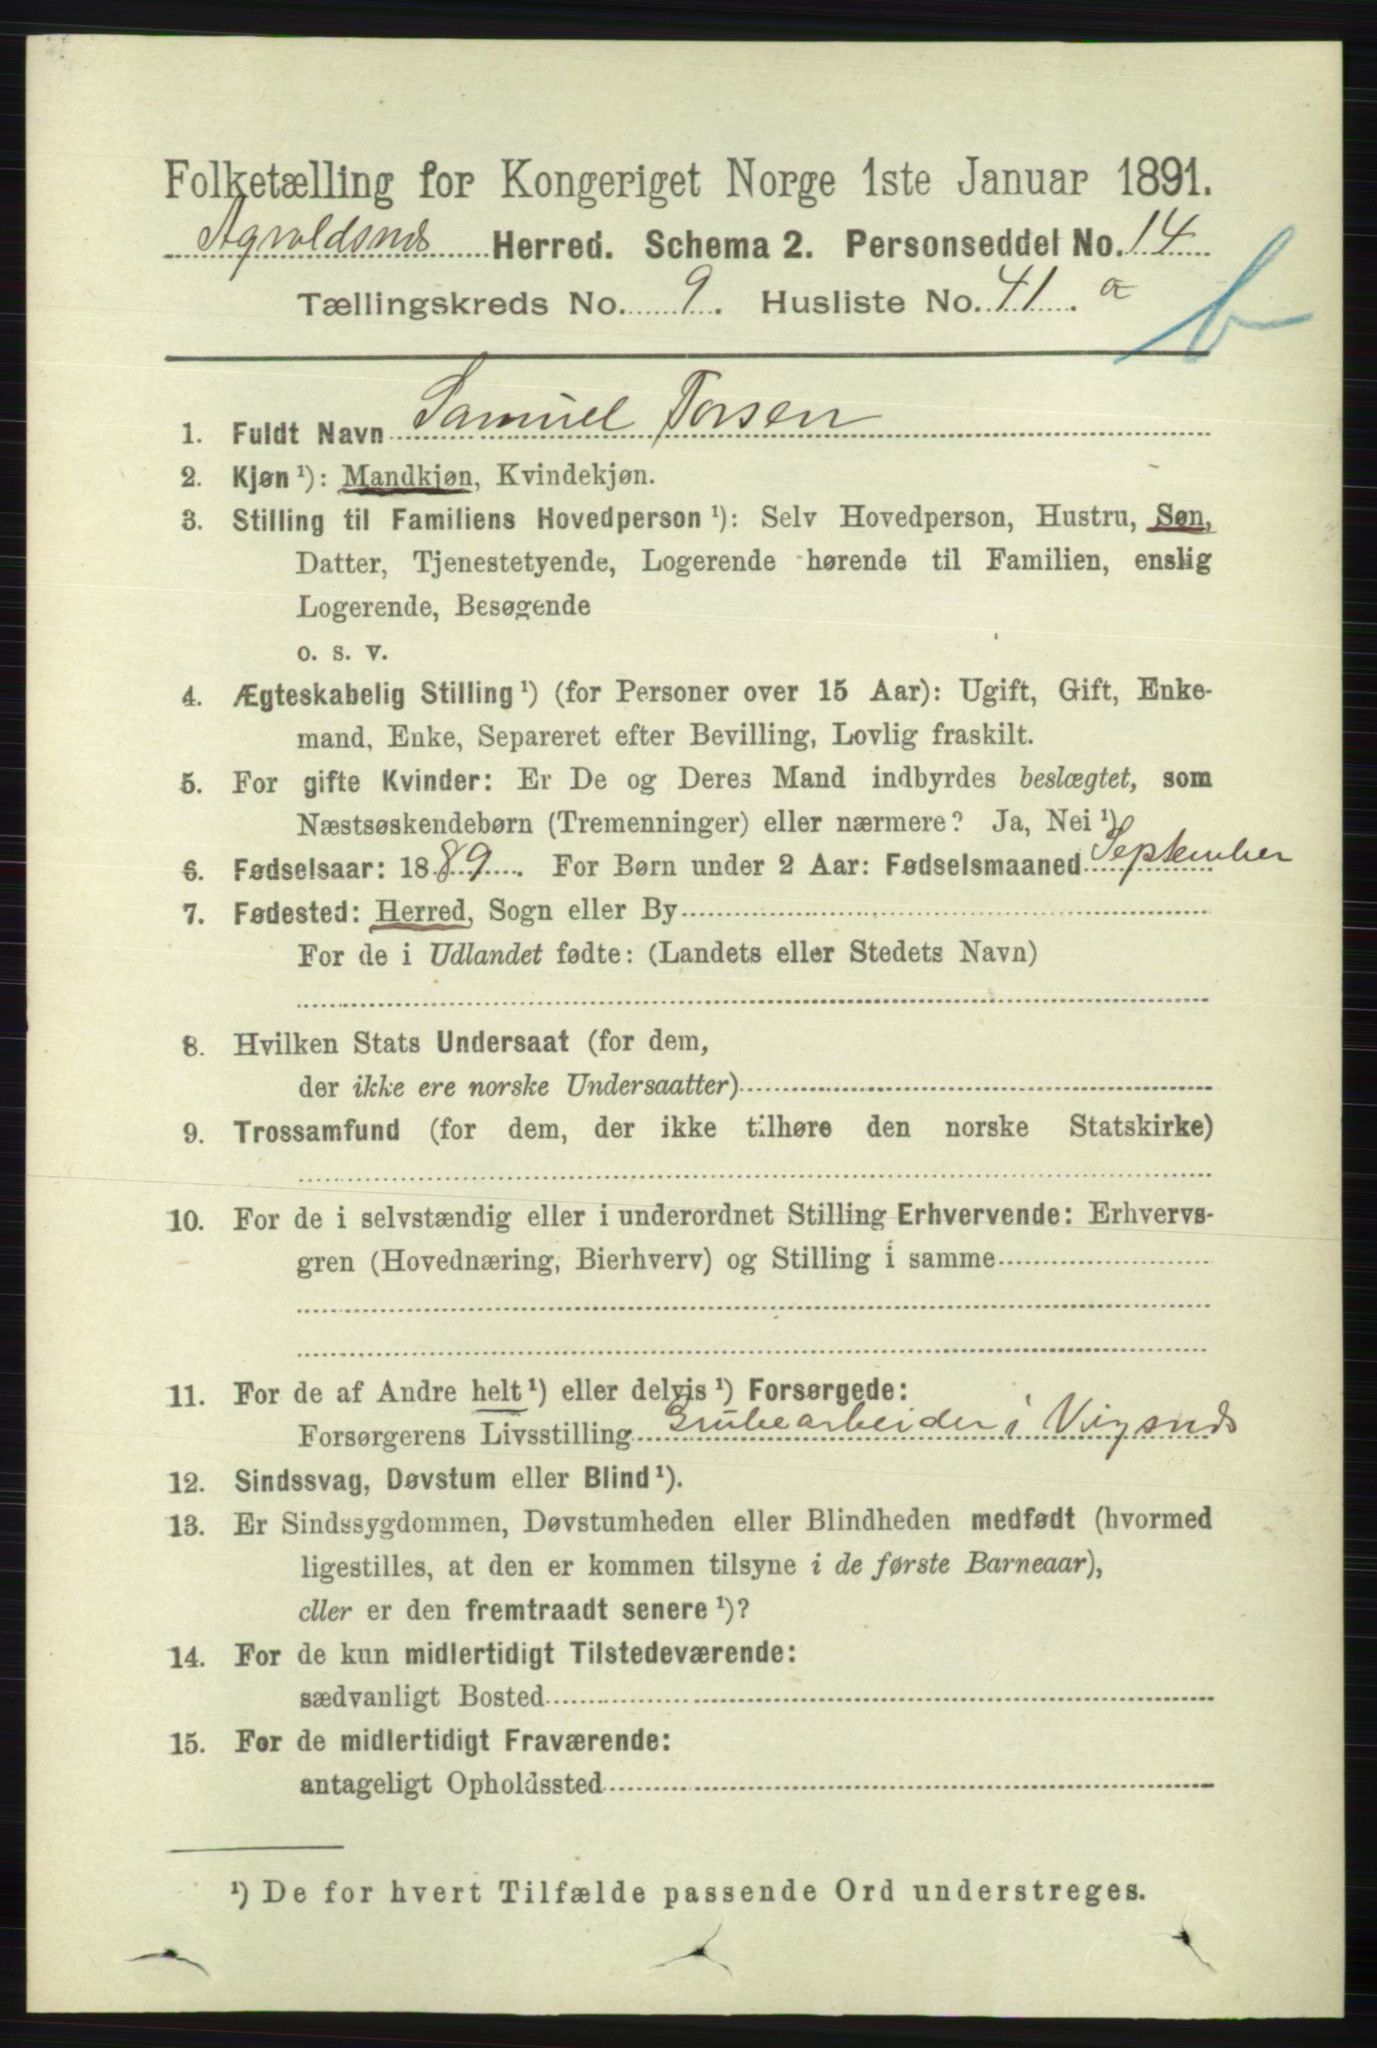 Folketælling for Kongeriget Norge 1ste Januar 1891.
Agvaldsnæs Herred. Schema 2. Personseddel No. 14
Tællingskreds No. 9. Husliste No. 41. a
b
1. Fuldt Navn Samuel Torsen
2. Kjøn¹): Mandkjøn, Kvindekjøn.
3. Stilling til Familiens Hovedperson¹): Selv Hovedperson, Hustru, Søn,
Datter, Tjenestetyende, Logerende hørende til Familien, enslig
Logerende, Besøgende
o. s. v.
4. Ægteskabelig Stilling¹) (for Personer over 15 Aar): Ugift, Gift, Enke-
mand, Enke, Separeret efter Bevilling, Lovlig fraskilt.
5. For gifte Kvinder: Er De og Deres Mand indbyrdes beslægtet, som
Næstsøskendebørn (Tremenninger) eller nærmere? Ja, Nei¹)
6. Fødselsaar: 1889. For Børn under 2 Aar: Fødselsmaaned September
7. Fødested: Herred, Sogn eller By
For de i Udlandet fødte: (Landets eller Stedets Navn)
8. Hvilken Stats Undersaat (for dem,
der ikke ere norske Undersaatter)
9. Trossamfund (for dem, der ikke tilhøre den norske Statskirke)
10. For de i selvstændig eller i underordnet Stilling Erhvervende: Erhvervs-
gren (Hovednæring, Bierhverv) og Stilling i samme
11. For de af Andre helt¹) eller delvis¹) Forsørgede:
Forsørgerens Livsstilling Grubearbeider i Vigsnæs
12. Sindssvag, Døvstum eller Blind¹).
13. Er Sindssygdommen, Døvstumheden eller Blindheden medfødt (hvormed
ligestilles, at den er kommen tilsyne i de første Barneaar),
eller er den fremtraadt senere¹)?
14. For de kun midlertidigt Tilstedeværende:
sædvanligt Bosted
15. For de midlertidigt Fraværende:
antageligt Opholdssted
¹) De for hvert Tilfælde passende Ord understreges.